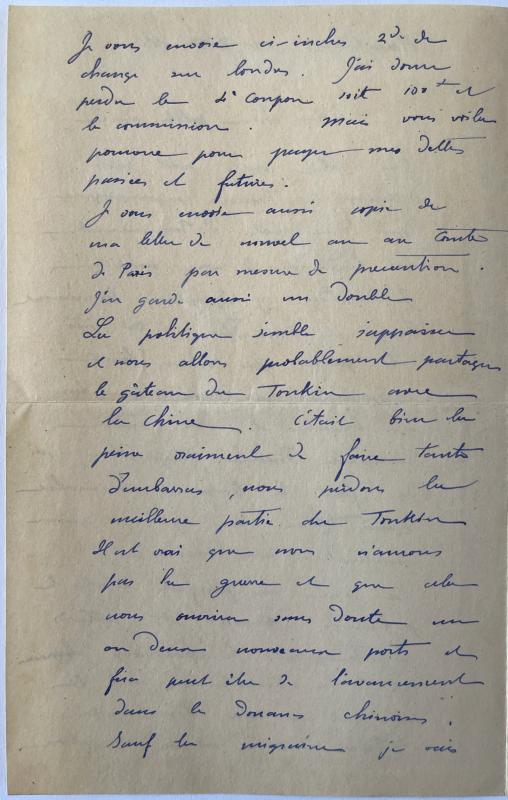 Je vous envoie ci-inclus 2de de
change sur londres. J'ai donc
perdu le 4e Coupon soit 100 et
la commission. Mais vous voila
pour payer mes dettes
passées et futures.
Je vous envoie aussi copie de
ma lettre de nouvel an au Comte
de Paris par mesure de precaution.
J'en garde aussi un double
La politique semble s'appaiser
et nous allons probablement partager
le gâteau du Tonkin avec
la Chine. C'était bien la
peine vraiment de faire tant
d'embarras, nous perdons la
meilleure partie du Tonkin
Il est vrai que nous n'aurons
pas la guerre et que cela
nous ouvrira sans doute un
ou deux nouveaux ports et
fera peut être de l'avancement
dans les Douanes chinoises.
Sauf la migraine je vais